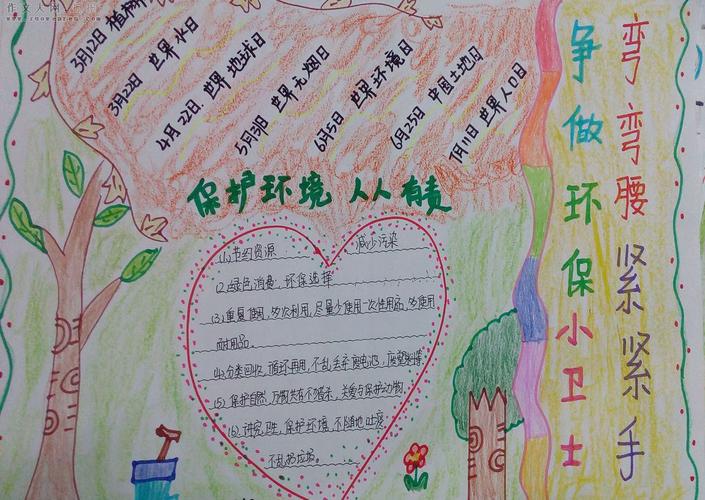 作文人网
3月12日 植树节
3月22日 世界水日
4月22日 世界地球日
5月31日 世界无烟日
6月5日 世界环境日
6月25日 中国土地日
7月11日 世界人口日
保护环境 人人有责
(1)节约资源 减少污染
(2)绿色消费,环保选择
(3)重复使用,多次利用,尽量少使用一次性用品,多使用
耐用品。
(4)分类回收,循环再用,不乱丢弃废电池,
(5)保护自然,万物共有不猎杀,关爱与保护动物。
(6)讲究卫生,保护环境,不随地吐痰
不乱扔垃圾。
争做环保小卫士
弯弯腰紧紧手